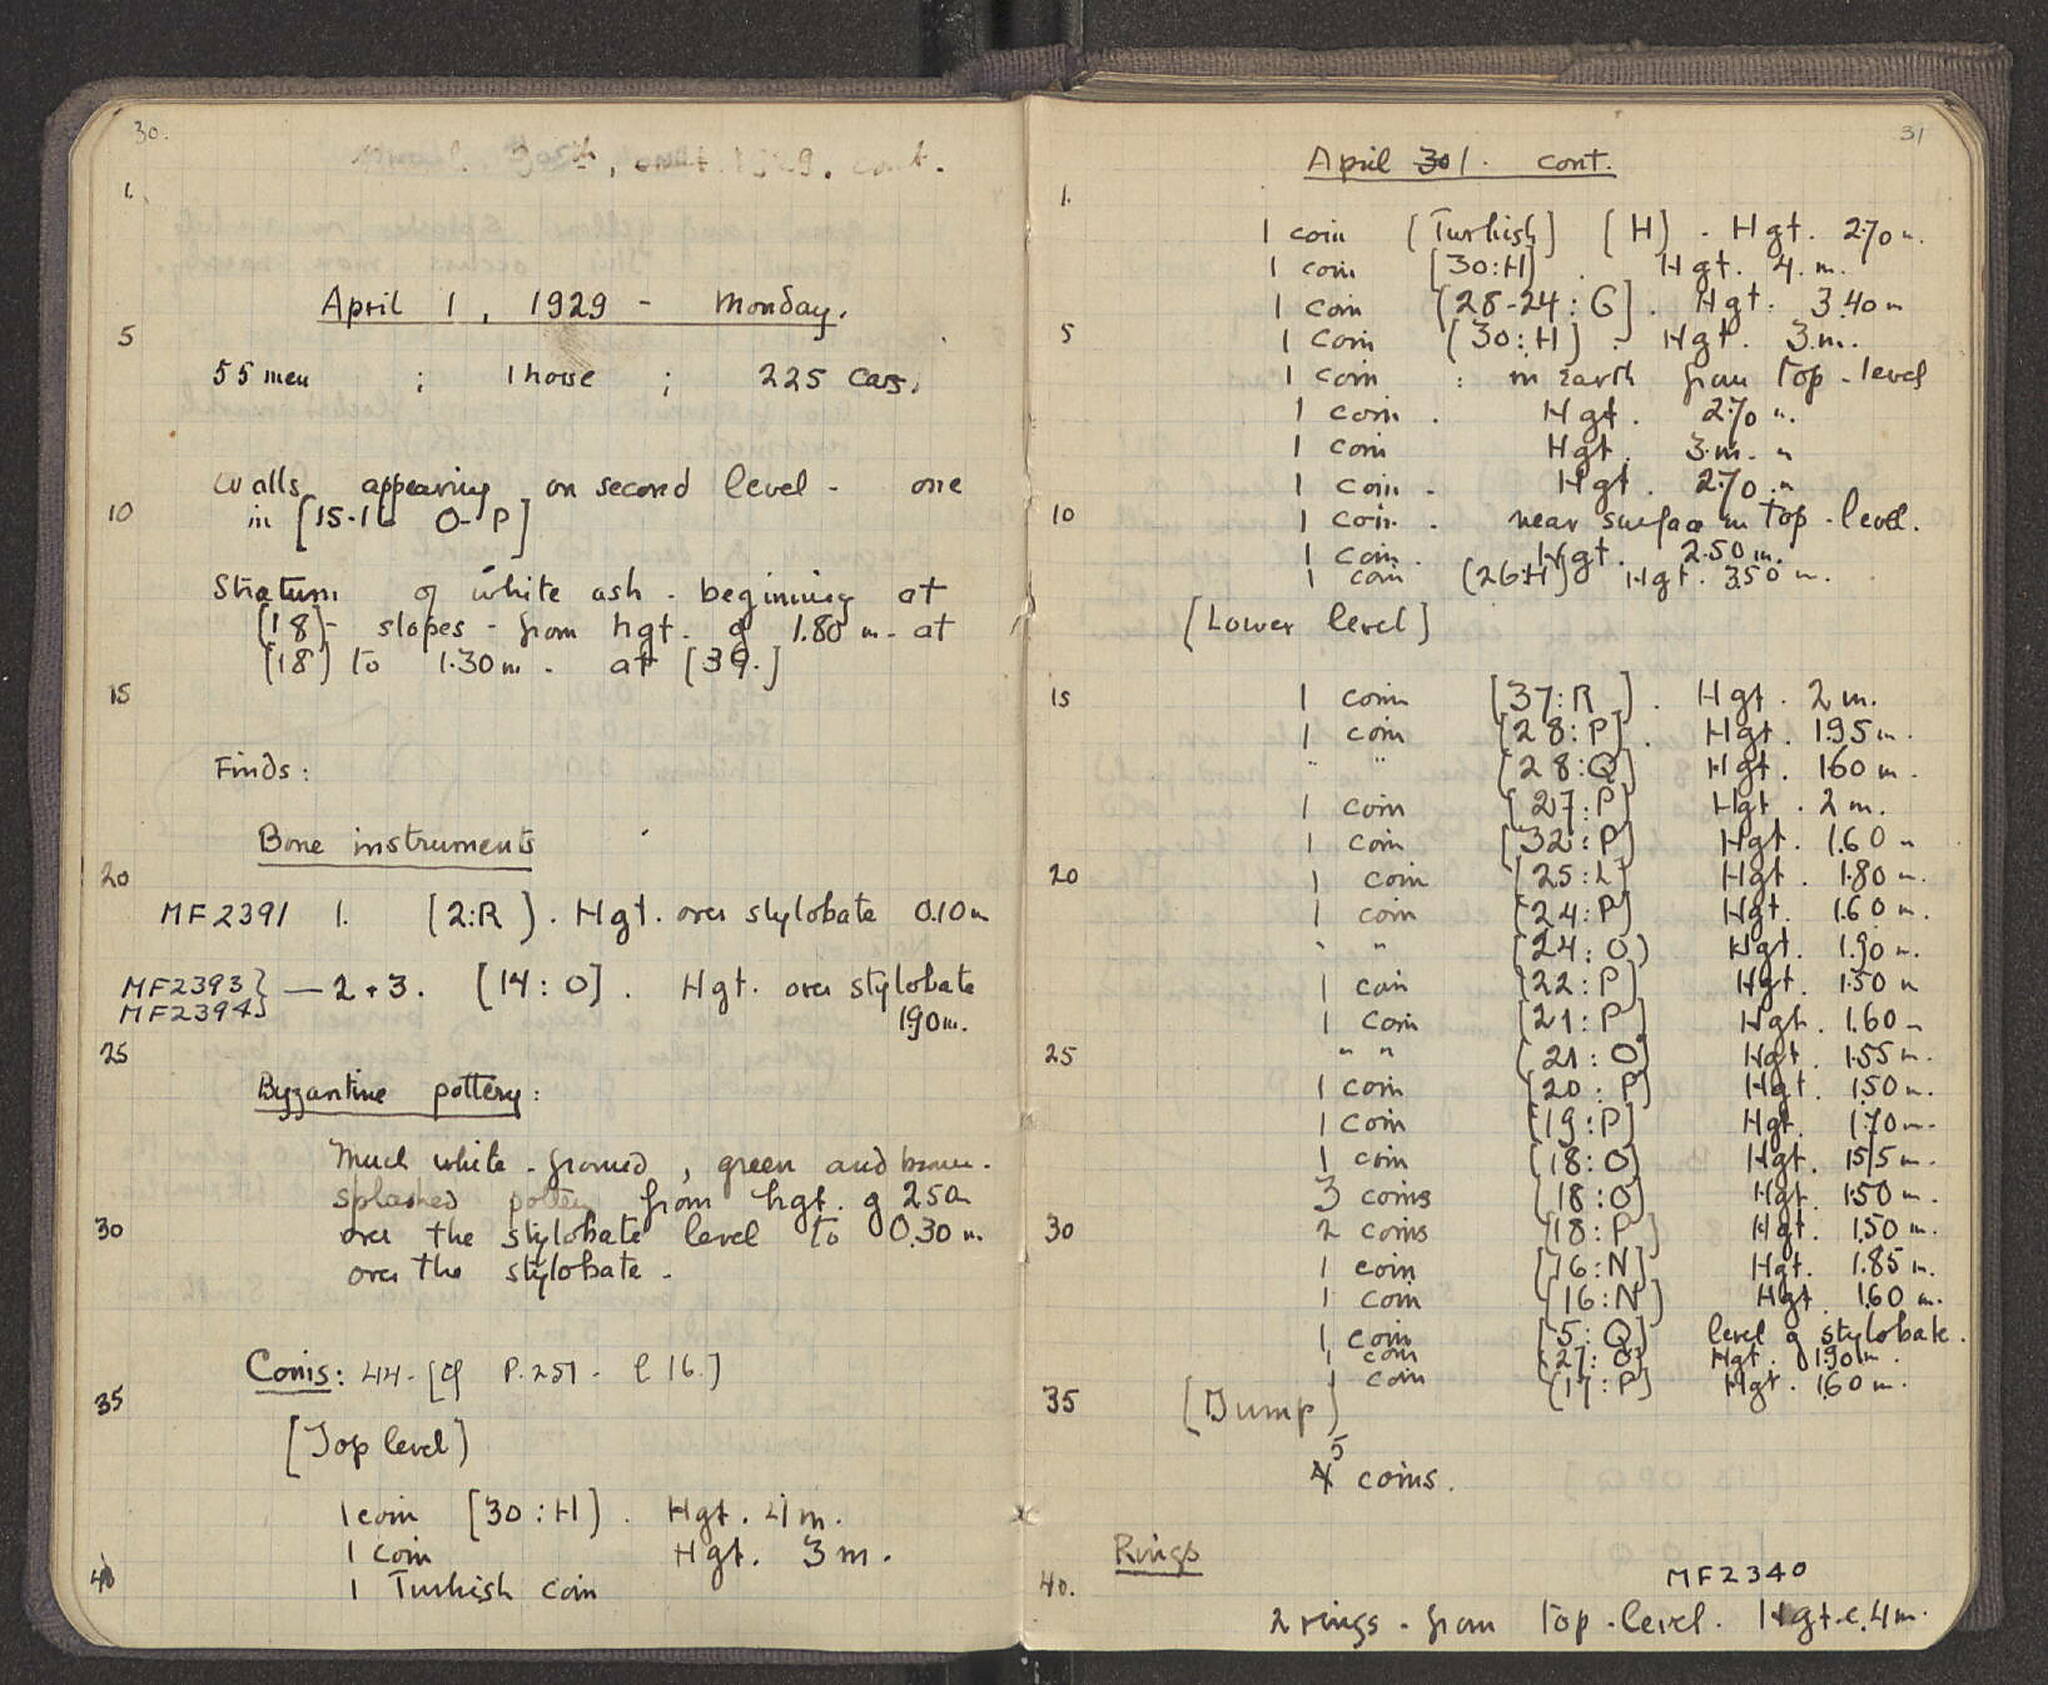 30.
1.
April 1, 1929 - Monday.
5
55 men ; 1 horse ; 225 cars.
Walls appearing on second level - one
10
in [15-16 O-P]
Stratum of white ash - beginning at
[18] - slopes - from hgt. of 1.80 m. at
[18] to 1.30 m. at [39.]
15
Finds:
Bone instruments
20
MF2391 1. [2:R]. Hgt. over stylobate 0.10 m
MF2393} — 2 + 3. [14:O]. Hgt. over stylobate
MF2394} 1.90 m.
25
Byzantine pottery:
Much white-ground, green and brown-
splashed pottery from hgt. of 2.50 m
30 over the stylobate level to 0.30 m.
over the stylobate.
Coins: 44 - [cf P. 251 - l 16.]
35
[Top level]
1 coin [30:H]. Hgt. 4 m.
1 coin Hgt. 3 m.
40 1 Turkish coin
31
April 30 1. cont.
1.
1 coin [Turkish] [H] . Hgt. 2.70 m.
1 coin [30:H] . Hgt. 4. m.
1 coin [28-24:G]. Hgt. 3.40 m
5 1 coin [30:H] . Hgt. 3 m.
1 coin : in earth from top-level
1 coin . Hgt. 2.70 m.
1 coin Hgt. 3 m.
1 coin . Hgt. 2.70 m
10 1 coin . near surface in top-level.
1 coin . Hgt. 2.50 m.
1 coin [26:H] Hgt. 3.50 m.
[Lower level]
15 1 coin [37:R]. Hgt. 2 m.
1 coin [28:P]. Hgt. 1.95 m.
" " [28:Q] Hgt. 1.60 m.
1 coin [27:P] Hgt. 2 m.
1 coin [32:P] Hgt. 1.60 m
20 1 coin [25:L] Hgt. 1.80 m.
1 coin [24:P] Hgt. 1.60 m.
" " [24:O] Hgt. 1.90 m.
1 coin [22:P] Hgt. 1.50 m
1 coin [21:P] Hgt. 1.60 m
25 " " [21:O] Hgt. 1.55 m.
1 coin [20:P] Hgt. 1.50 m.
1 coin [19:P] Hgt. 1.70 m.
1 coin [18:O] Hgt. 1.55 m.
3 coins [18:O] Hgt. 1.50 m.
30 2 coins [18:P] Hgt. 1.50 m.
1 coin [16:N] Hgt. 1.85 m.
1 coin [16:N] Hgt. 1.60 m.
1 coin [5:Q] level of stylobate.
1 coin [27:O] Hgt. 1.90 m.
1 coin [17:P] Hgt. 1.60 m.
35 [Dump]
5
4 coins.
Rings
MF2340
40.
2 rings - from top-level. Hgt. c. 4 m.